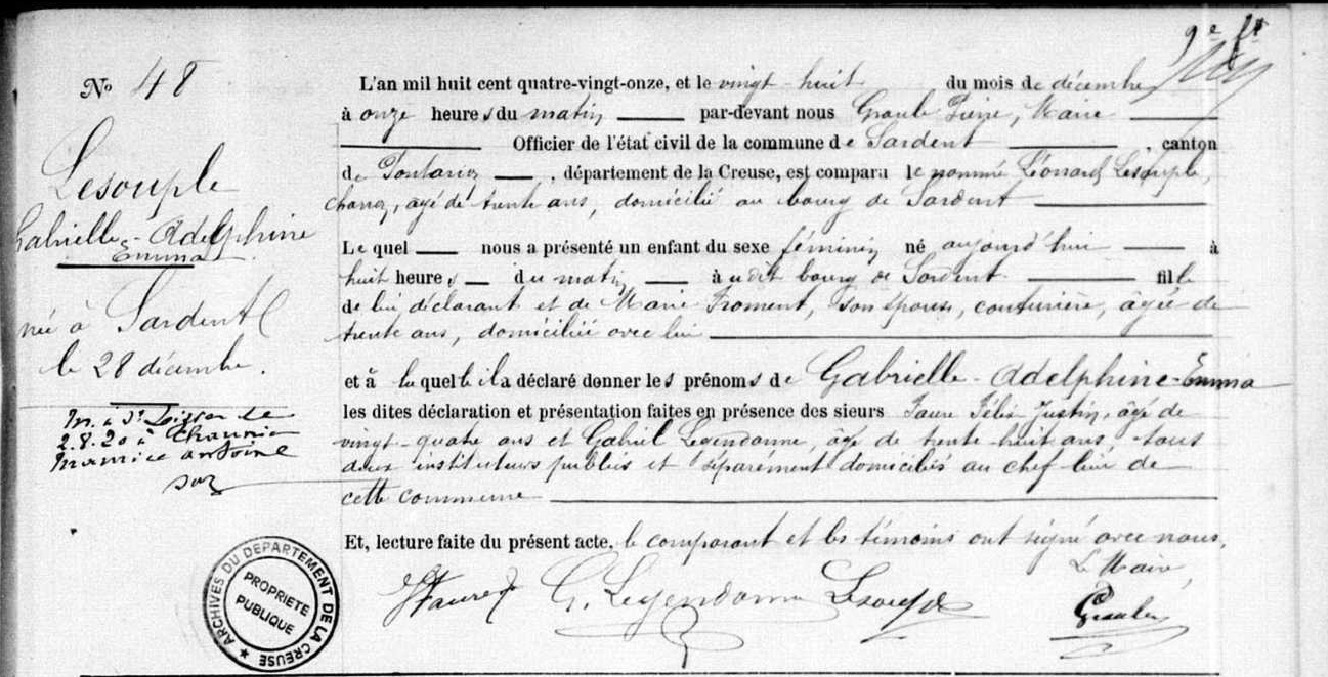 9e
No 48
Lesouple
Gabrielle-Adelphine
Emma
née à Sardent
le 28 décembre.
M. à St
2.8.20 à
Maurice Antoine
L'an mil huit cent quatre-vingt-onze, et le vingt-huit du mois de décembre
à onze heures du matin par-devant nous Pierre, Maire
Officier de l'état civil de la commune de Sardent, canton
de Pontarion, département de la Creuse, est comparu le nommé Léonard Lesouple,
âgé de trente ans, domicilié au bourg de Sardent
Le quel nous a présenté un enfant du sexe féminin né aujourd'hui à
huit heures du matin audit bourg de Sardent fille
de lui déclarant et de Marie Froment, son épouse, couturière, âgée de
trente ans, domiciliée avec lui
et à laquelle il a déclaré donner les prénoms de Gabrielle-Adelphine-Emma
les dites déclaration et présentation faites en présence des sieurs Faure Félix Justin, âgé de
vingt-quatre ans et Gabriel Legendanne, âgé de trente-huit ans, tous
deux instituteurs publics et séparément domiciliés au chef-lieu de
cette commune
Et, lecture faite du présent acte, le comparant et les témoins ont signé avec nous.
Le Maire,
Faure G. Lesouple
ARCHIVES DU DEPARTEMENT DE LA CREUSE
PROPRIETE
PUBLIQUE